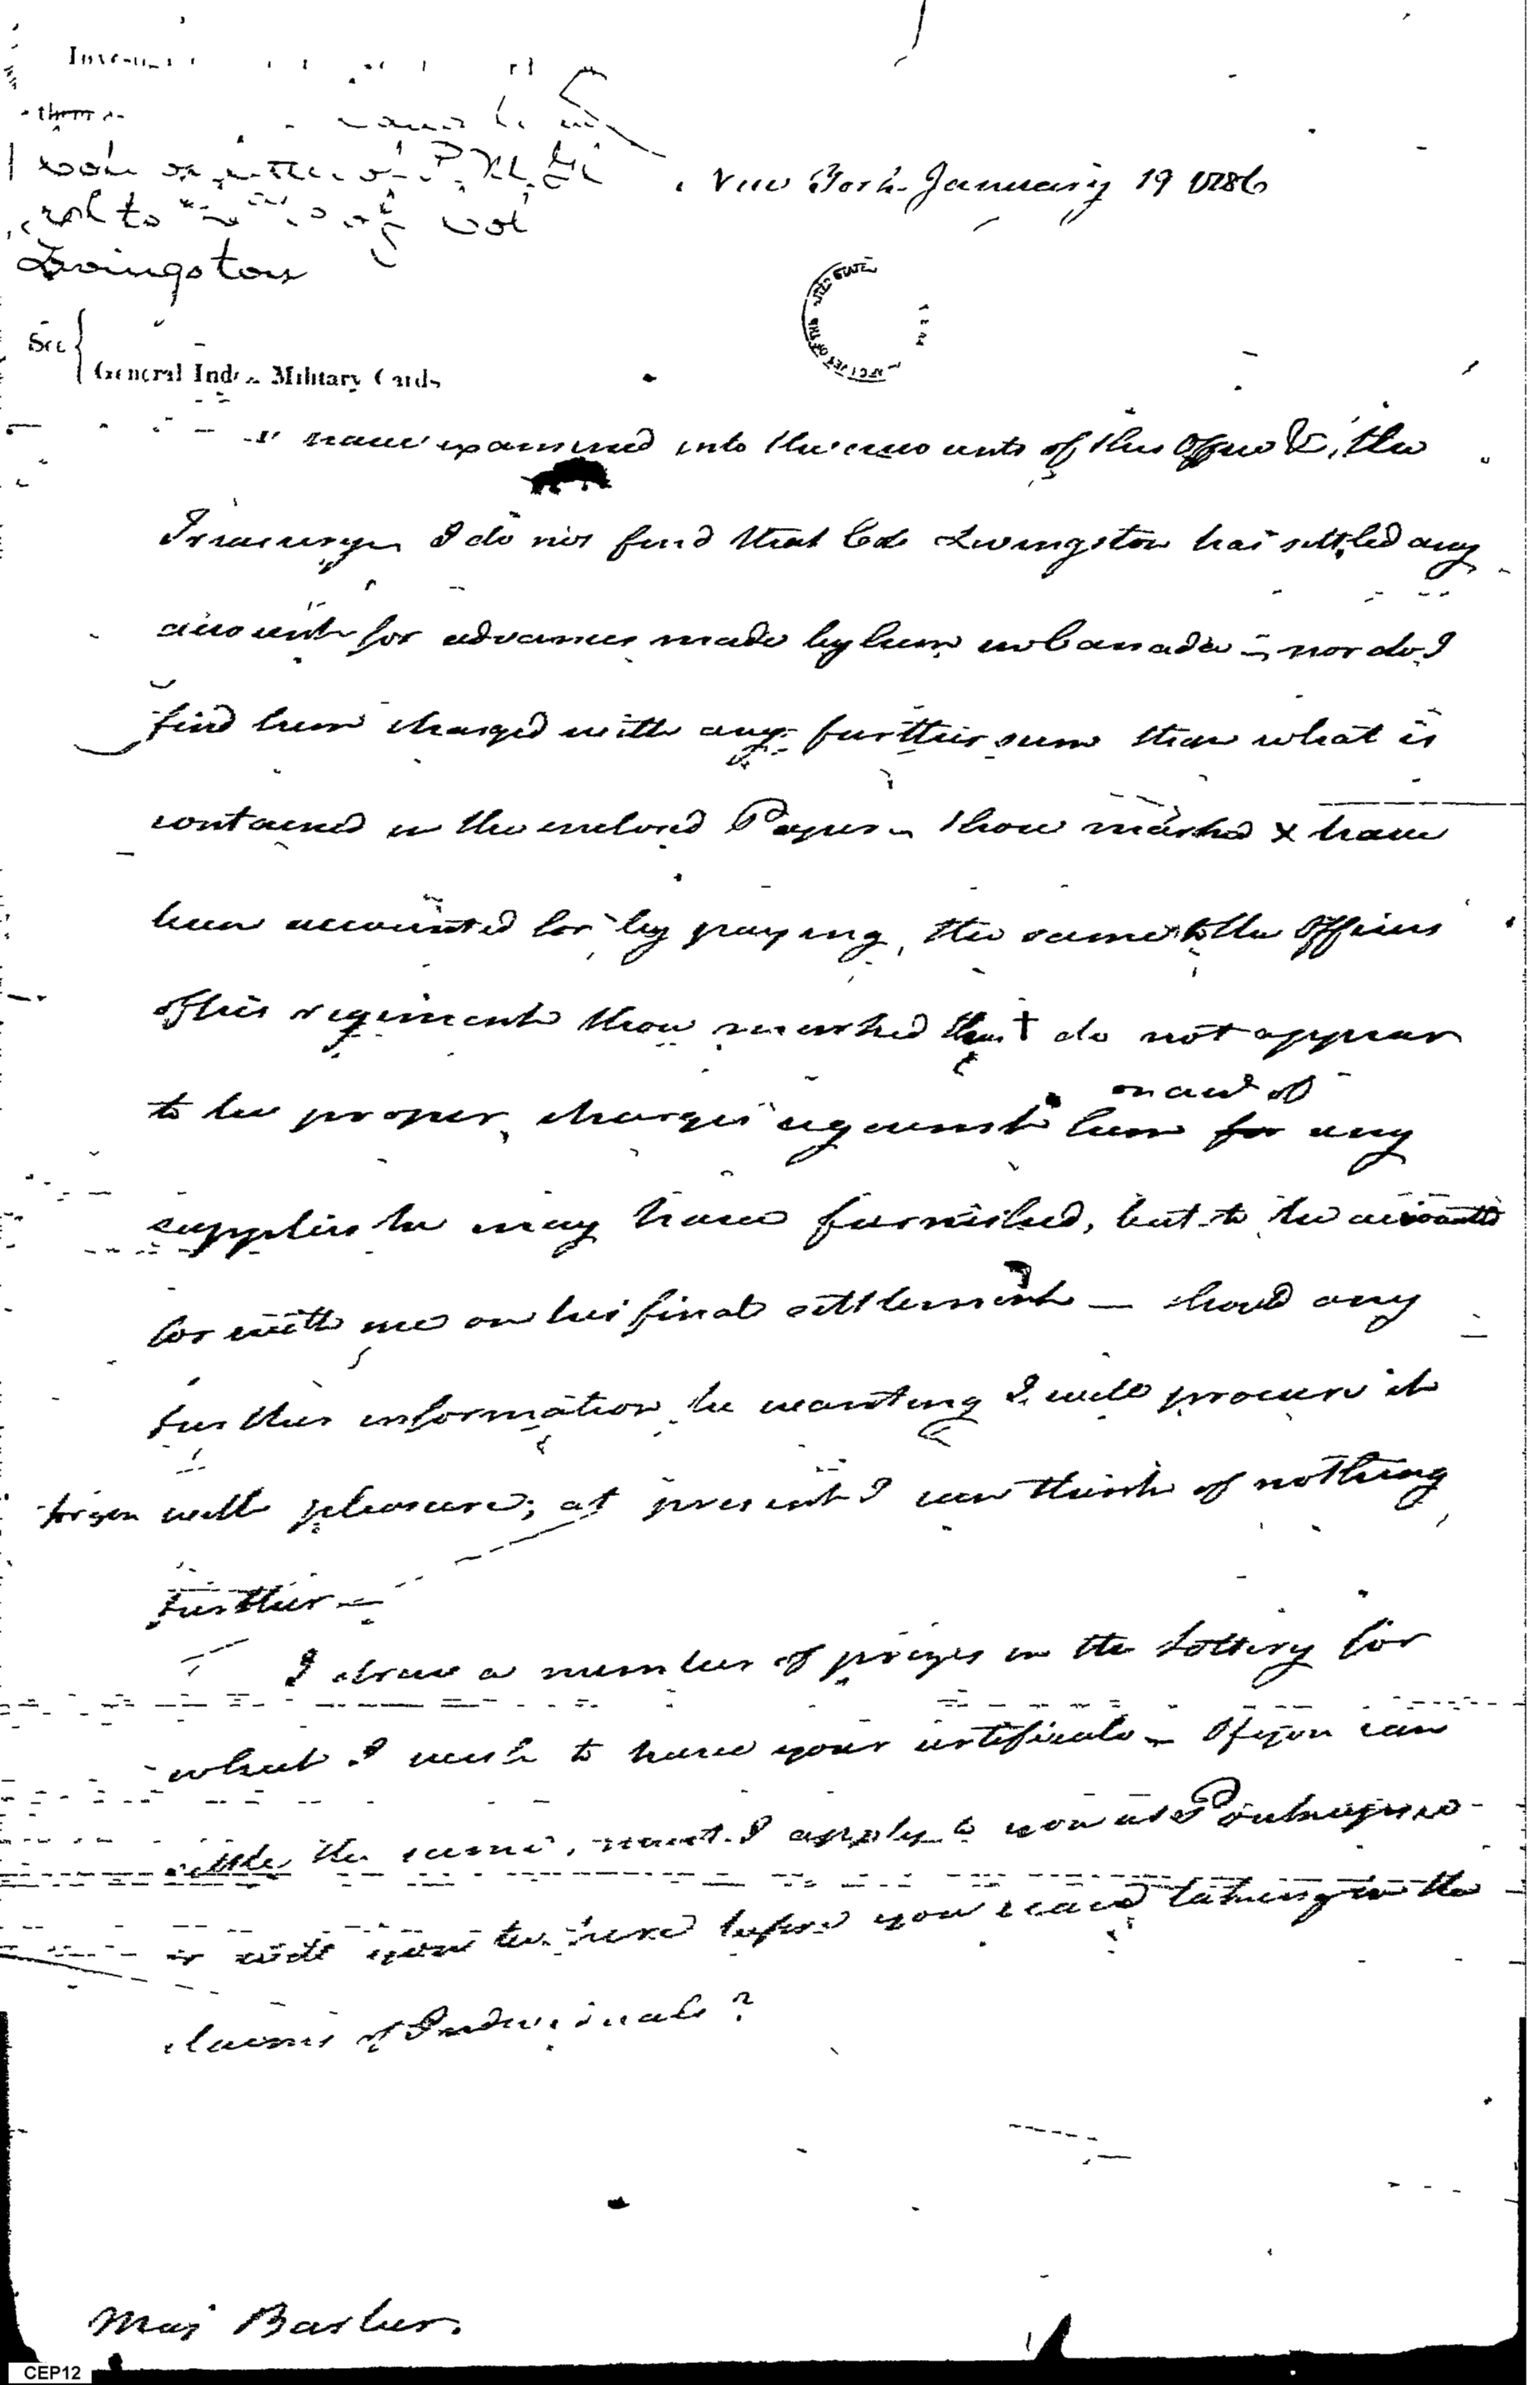 New York January 19 1786
Livingston
See
General Index Military Cards
I have examined into the accounts of this Office & the
Treasury I do not find that Col Livingston has settled any
accounts for advances made by him in Canada - nor do I
find him charged with any further sum than what is
contained in the enclosed Papers those marked x have
been accounted for by paying the same to the Officers
of his regiment those marked thus † do not appear
on acct of
to be proper charges against him for any
supplies he may have furnished, but to be accounted
for with me on his final settlement — should any
further information be wanting I will procure it
for you with pleasure; at present I can think of nothing
further —
I draw a number of prizes in the Lottery for
what I wish to have your certificate - If you can
settle the same, must I apply to you at Poukeepsie
or will you be here before you taking in the
claims of Individuals ?
Maj Barber.
CEP12